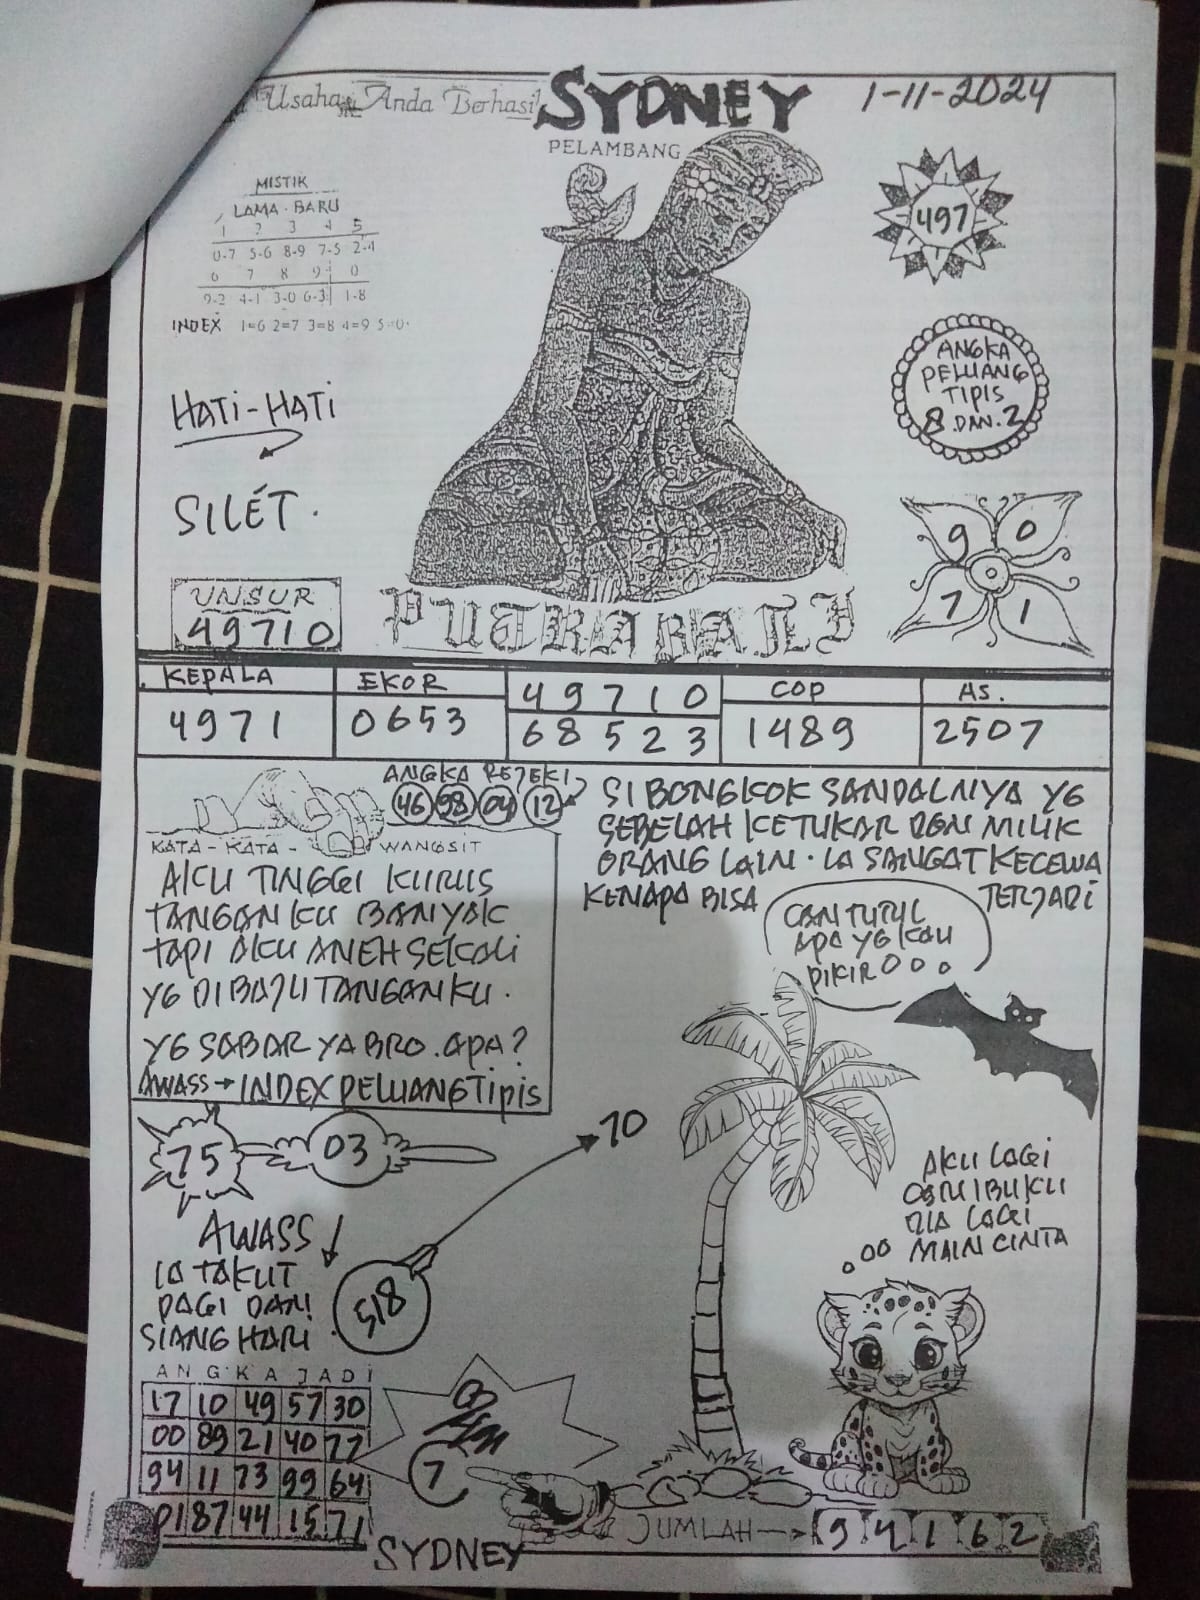 Usaha Anda Berhasil
SYDNEY
1-11-2024
PELAMBANG
MISTIK
LAMA - BARU
1 2 3 4 5
0-7 5-6 8-9 7-5 2-4
6 7 8 9 0
9-2 4-1 3-0 6-3 1-8
INDEX 1=6 2=7 3=8 4=9 5=0
497
ANGKA
PELUANG
TIPIS
8 DAN 2
HATI-HATI
SILÉT.
9 0
7 1
UNSUR
49710
PUTRA BALI
KEPALA
4971
EKOR
0653
49710
68523
COP
1489
AS.
2507
ANGKA REJEKI
46 98 04 12
KATA - KATA - WANGSIT
AKU TINGGI KURUS
TANGANKU BANYAK
TAPI AKU ANEH SEKALI
YG DIBAJU TANGANKU.
YG SABAR YA BRO. APA?
AWASS → INDEX PELUANG TIPIS
SI BONGKOK SANDALNYA YG
SEBELAH KETUKAR DGN MILIK
ORANG LAIN. IA SANGAT KECEWA
KENAPA BISA TERJADI
CANTUTUL
APA YG KAU
PIKIR
75 03
10
AWASS
IA TAKUT
PAGI DAN
SIANG HARI.
518
AKU LAGI
DIA LAGI
MAIN CINTA
ANGKA JADI
17 10 49 57 30
00 89 21 40 77
94 11 73 99 64
01 87 44 15 71
7
JUMLAH → 9 4 1 6 2
SYDNEY